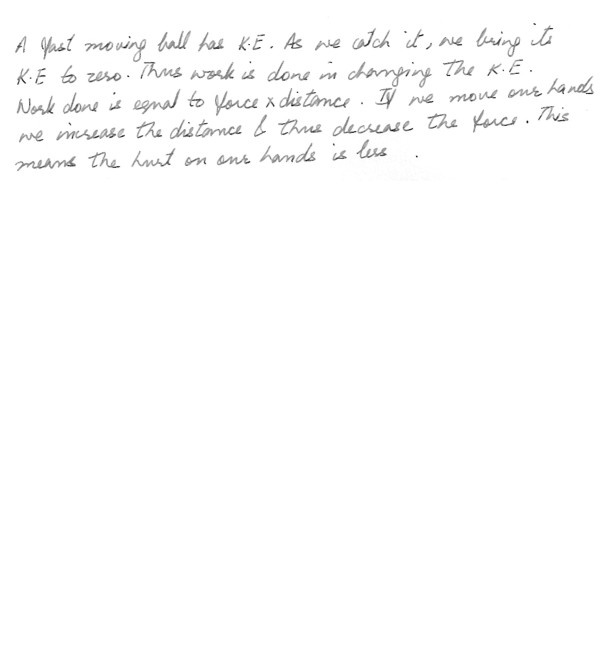 A fast moving ball has K.E. As we catch it, we bring its
K.E to zero. Thus work is done in changing the K.E.
Work done is equal to force x distance. If we move our hands
we increase the distance & thus decrease the force. This
means the hurt on our hands is less.